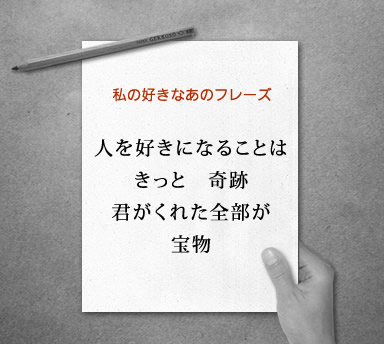 私の好きなあのフレーズ
人を好きになることは
きっと　奇跡
君がくれた全部が
宝物